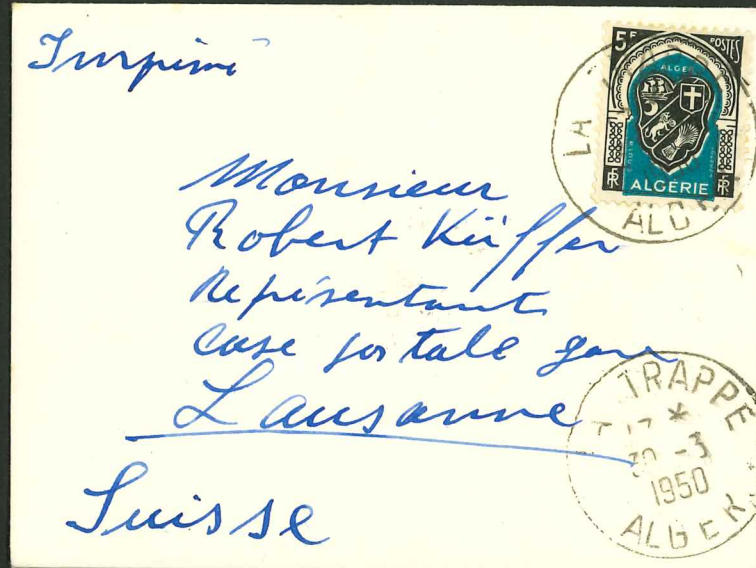 Imprimé
5F POSTES
ALGER
RF RF
ALGÉRIE
LA
ALGER
Monsieur
Robert Küffer
Représentant
Case postale gare
Lausanne
Suisse
TRAPPE
17 *
30 -3
1950
ALGER